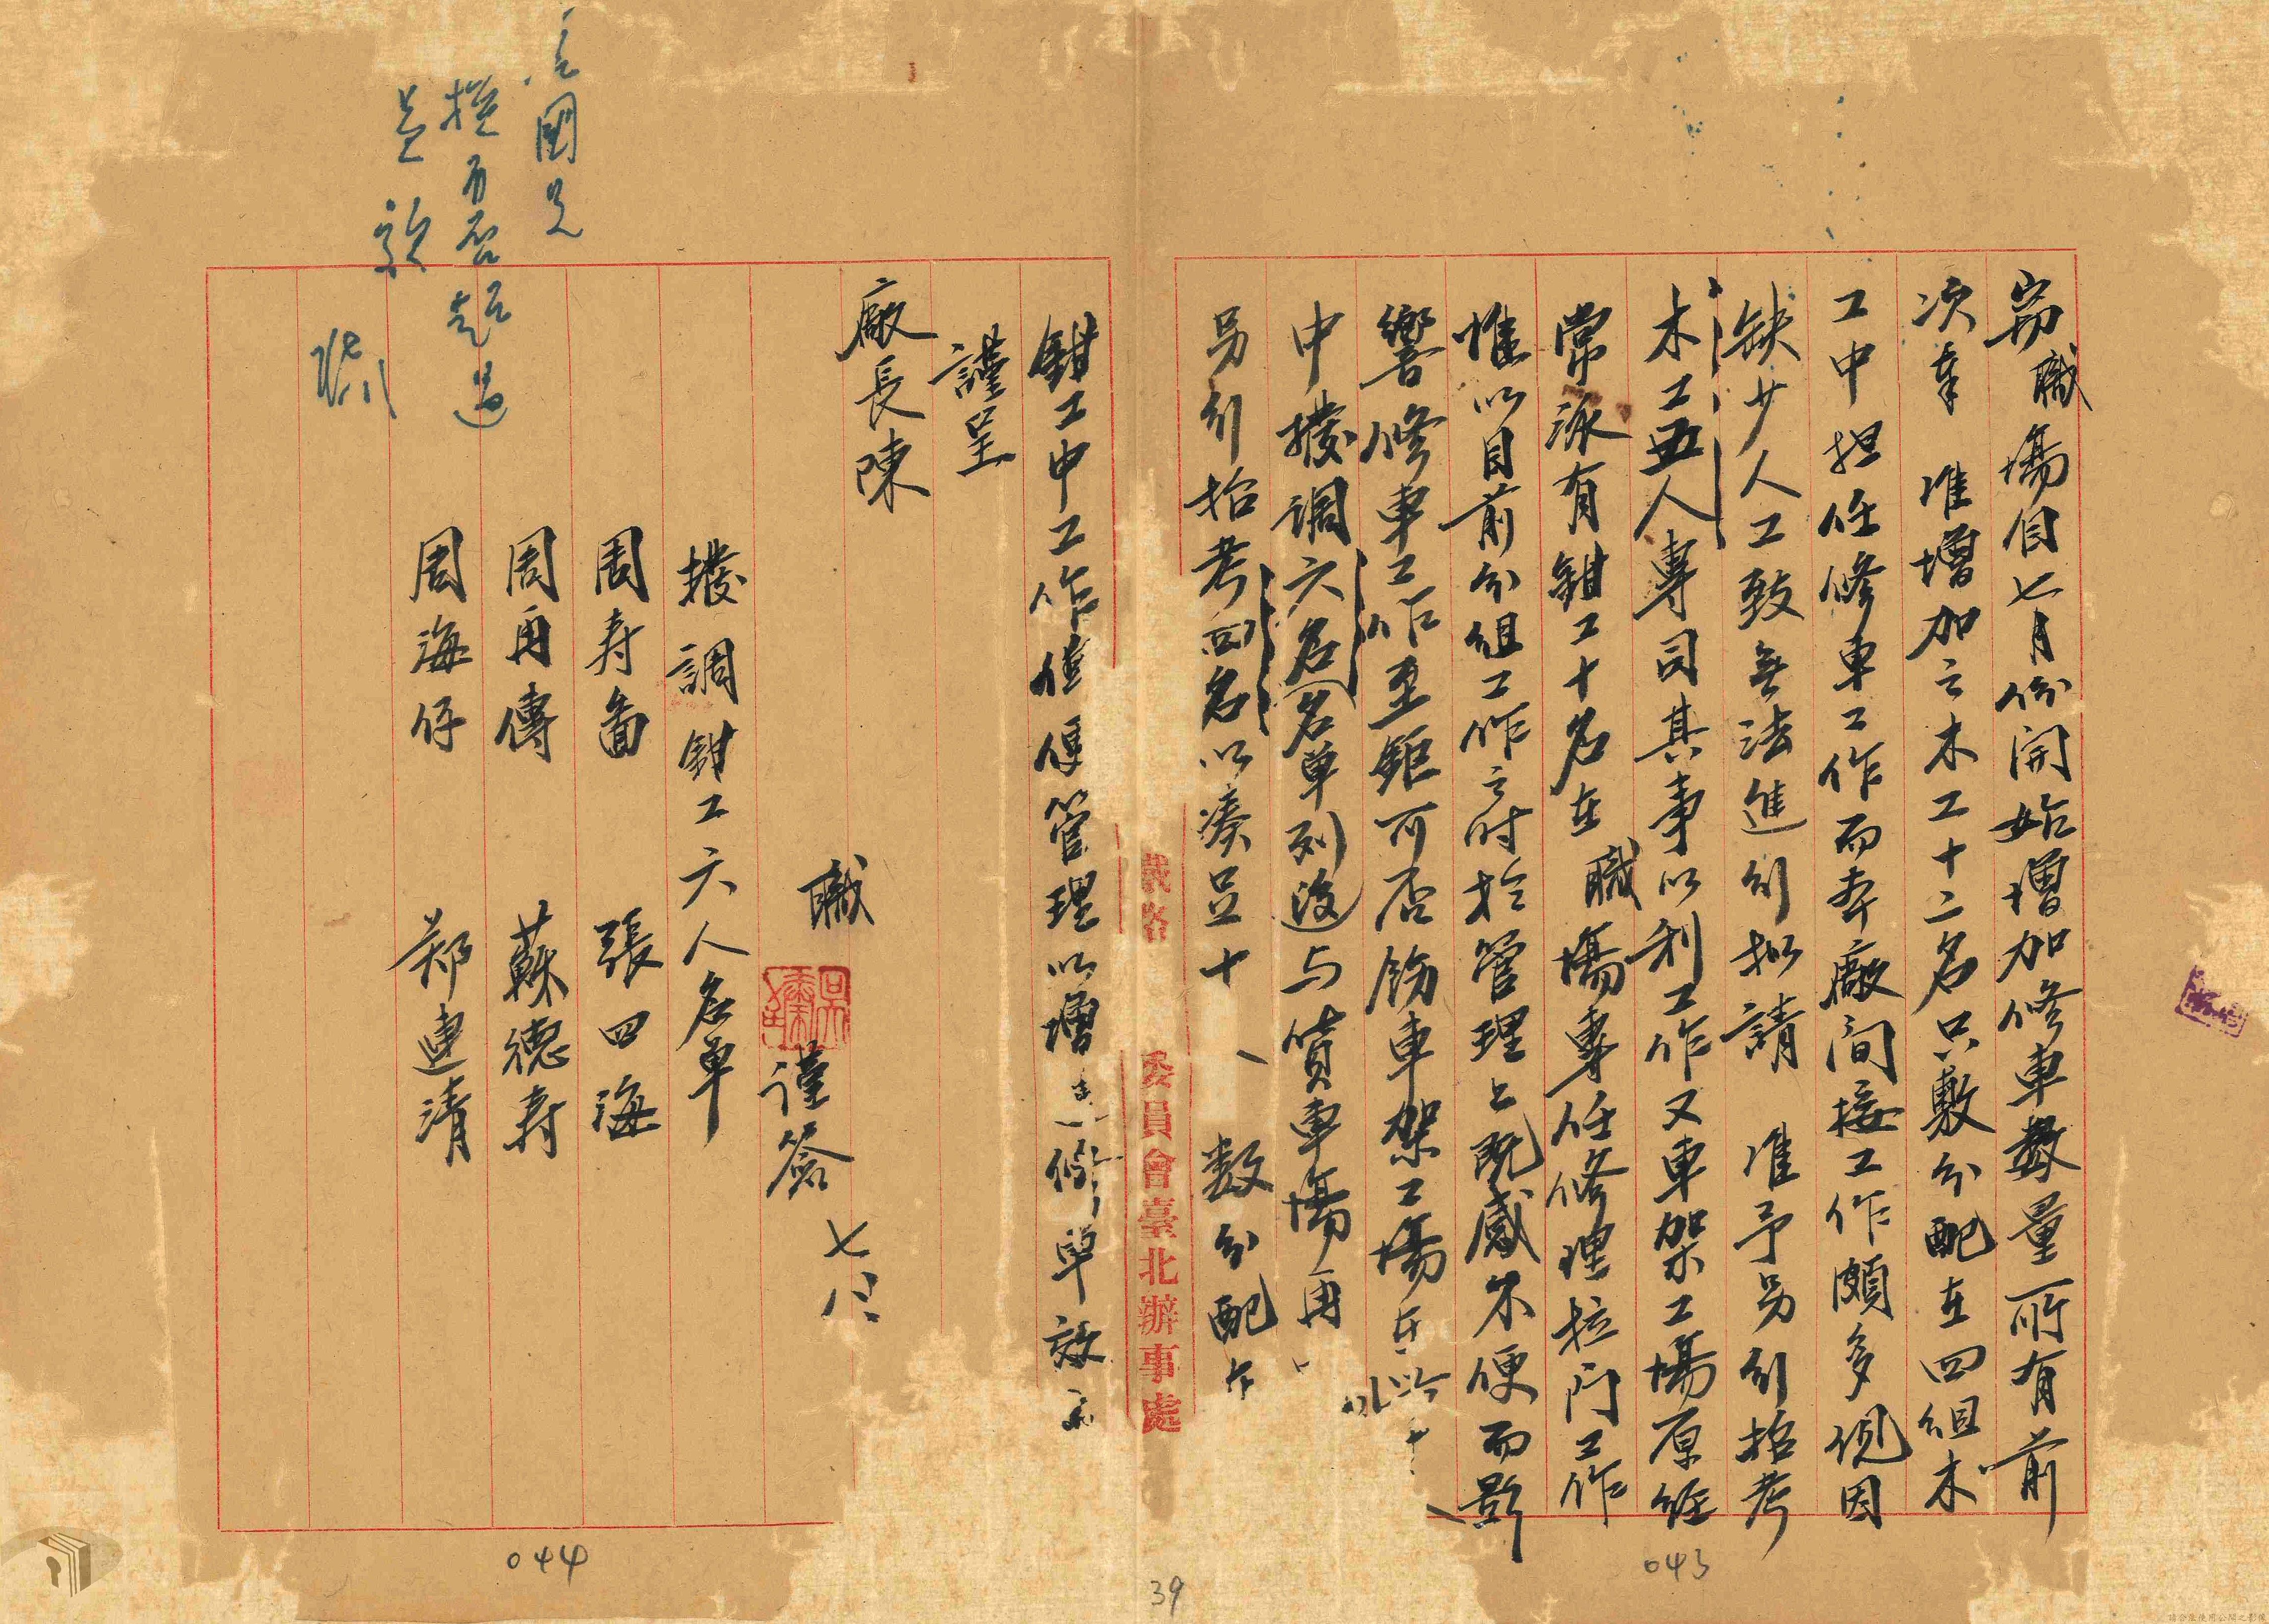 竊職場自七月份開始增加修車數量所有前
次奉 准增加之木工十二名只敷分配在四組木
工中担任修車工作而本廠間接工作頗多現因
缺少人工致無法進行擬請 准予另行招考
木工五人專司其事以利工作又車架工場原經
常派有鉗工十名在職場專任修理拉門工作
惟以目前分組工作之時於管理上既感不便而影
響修車工作至鉅可否飭車架工場在
中撥調六名(名單列後)与貨車場再
另行招考四名以湊足十 數分配
鉗工中工作 便管理以增 修車效
謹呈
廠長陳
職 謹簽 七
撥調鉗工六人名單
周寿 張四海
周再傳 蘇德寿
周海仔 鄭連清
委員會臺北辦事處
043
044
39